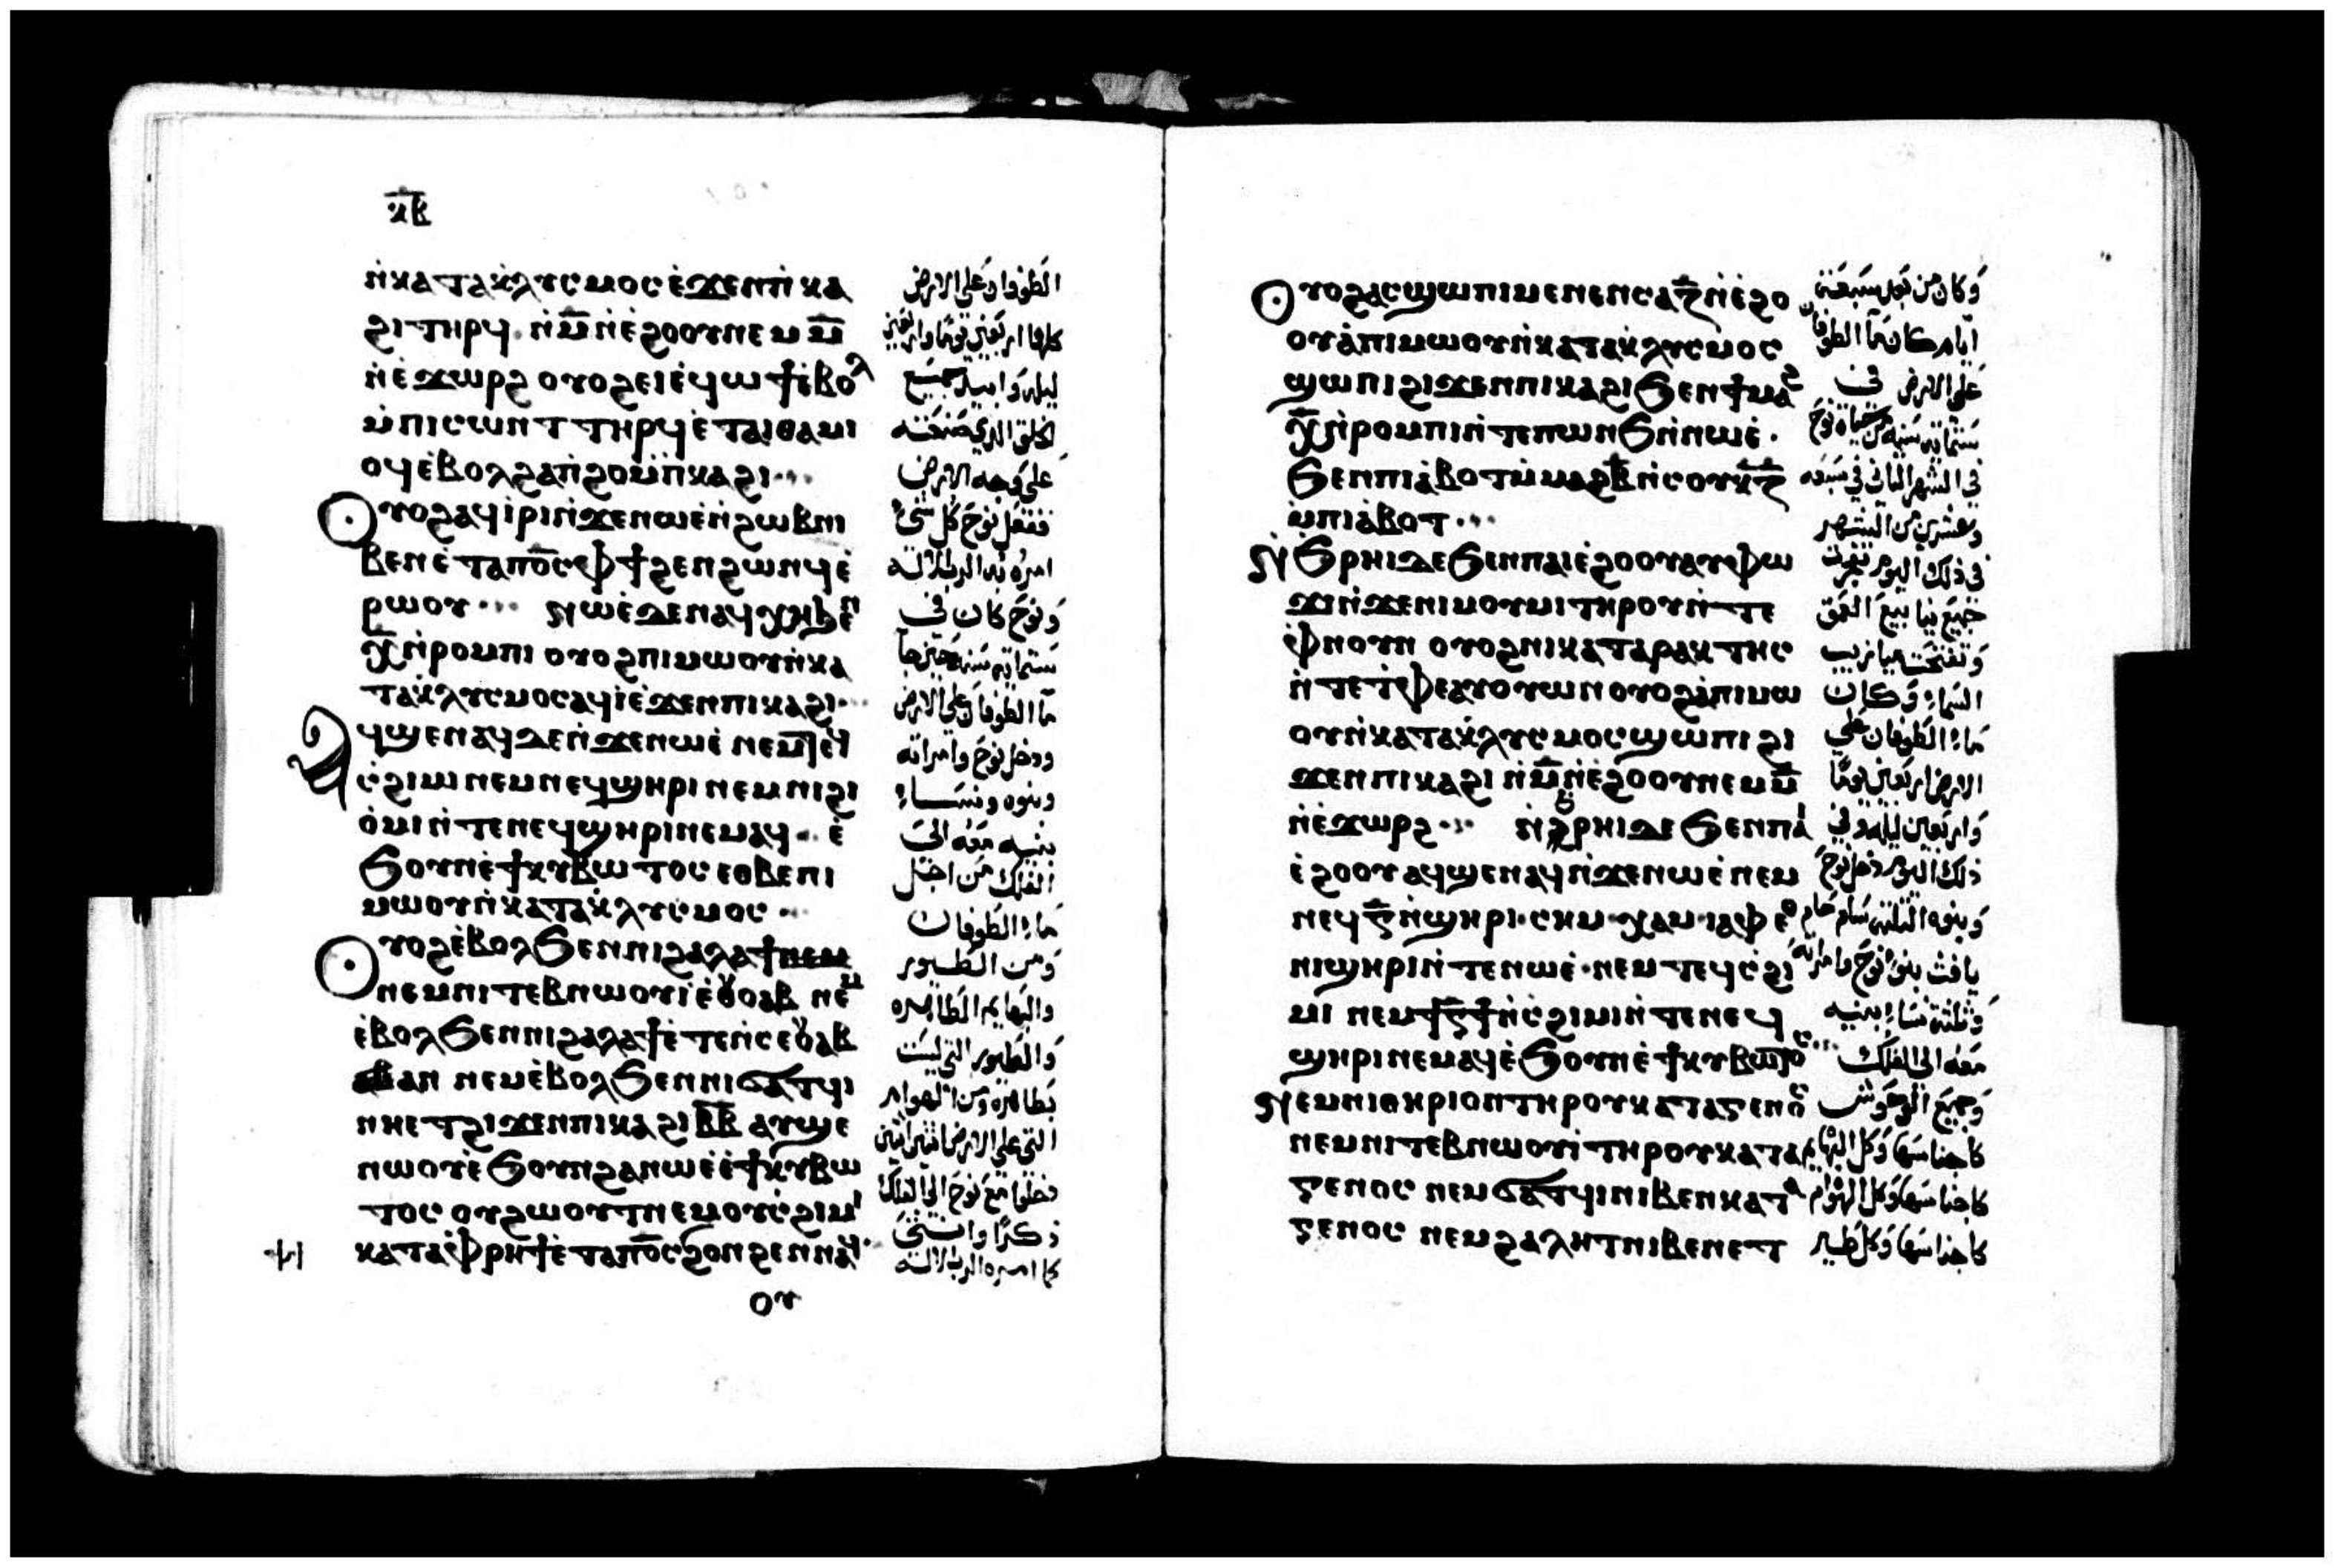 ⲕ̅ⲃ̅
ⲛ̀ⲕⲁⲧⲁⲕ̀ⲗⲩⲥⲙⲟⲥ ⲉ̀ϫⲉⲛⲡⲓ̀ⲕⲁ
ϩⲓ ⲧⲏⲣϥ. ⲛ̀ⲙ̅ ⲛ̀ⲉ̀ϩⲟⲟⲩ ⲛⲉⲙ ⲙ̅
ⲛ̀ⲉ̀ϫⲱⲣϩ ⲟⲩⲟϩ ⲉⲓⲉ̀ϥⲱϯ ⲉ̀ⲃⲟⲗ
ⲙ̀ⲡⲓⲥⲱⲛⲧ ⲧⲏⲣϥ ⲉ̀ⲧⲁⲓⲑⲁⲙⲓ
ⲟϥ ⲉ̀ⲃⲟⲗ ϩⲁⲡ̀ϩⲟ ⲙ̀ⲡ̀ⲕⲁϩⲓ
ⲟⲩⲟϩ ⲁϥⲓ̀ⲣⲓ ⲛ̀ϫⲉ ⲛⲱⲉ̀ ⲛ̀ϩⲱⲃ ⲛⲓ
ⲃⲉⲛ ⲉ̀ⲧⲁ ⲡⲟ̅ⲥ̅ ⲫϯ ϩⲉⲛϩⲱⲛϥ ⲉ̀
ⲣⲱⲟⲩ ⲛⲱⲉ̀ ⲇⲉ ⲛⲁϥϧⲏ ϧⲉⲛ
ⲭ̅ ⲛ̀ⲣⲟⲙⲡⲓ ⲟⲩⲟϩ ⲡⲓⲙⲱⲟⲩ ⲛ̀ⲕⲁ
ⲧⲁⲕ̀ⲗⲩⲥⲙⲟⲥ ⲁϥⲓ̀ ⲉ̀ϫⲉⲛ ⲡⲓⲕⲁϩⲓ
ⲁϥϣⲉⲛⲁϥ ⲇⲉ ⲛ̀ϫⲉ ⲛⲱⲉ̀ ⲛⲉⲙ ⲧⲉϥ
ⲥ̀ϩⲓⲙⲓ ⲛⲉⲙ ⲛⲉϥϣⲏⲣⲓ ⲛⲉⲙ ⲛⲓϩⲓ
ⲟ̀ⲙⲓ ⲛ̀ⲧⲉ ⲛⲉϥϣⲏⲣⲓ ⲛⲉⲙⲁϥ ⲉ̀
ϧⲟⲩⲛ ⲉ̀ϯⲕⲩⲃⲱⲧⲟⲥ ⲉⲑⲃⲉ ⲡⲓ
ⲙⲱⲟⲩ ⲛ̀ⲕⲁⲧⲁⲕ̀ⲗⲩⲥⲙⲟⲥ
ⲟⲩⲟϩ ⲉ̀ⲃⲟⲗ ϧⲉⲛ ⲛⲓϩⲁⲗⲁϯ ⲛⲉⲙ
ⲛⲉⲙ ⲛⲓⲧⲉⲃⲛⲱⲟⲩⲓ̀ ⲉ̀ⲑⲟⲩⲁⲃ ⲛⲉⲙ
ⲉ̀ⲃⲟⲗ ϧⲉⲛ ⲛⲓϩⲁⲗⲁϯ ⲉ̀ⲧⲉⲛ̀ⲥⲉⲟⲩⲁⲃ
ⲁⲛ ⲛⲉⲙ ⲉ̀ⲃⲟⲗ ϧⲉⲛ ⲛⲓϭⲁⲧϥⲓ
ⲛⲏⲉⲧϩⲓϫⲉⲛ ⲡⲓⲕⲁϩⲓ ⲃ̅ⲃ̅ ⲁⲩϣⲉ
ⲛⲱⲟⲩ ⲉ̀ϧⲟⲩⲛ ϩⲁ ⲛⲱⲉ̀ ⲉ̀ϯⲕⲩⲃⲱ
ⲧⲟⲥ ⲟⲩϩⲱⲟⲩⲧ ⲛⲉⲙ ⲟⲩⲥ̀ϩⲓⲙⲓ
ⲕⲁⲧⲁ ⲫⲣⲏϯ ⲉ̀ⲧⲁ ⲡⲟ̅ⲥ̅ ϩⲟⲛϩⲉⲛ ⲛⲁϥ
ⲟⲩ
الطوفان على الارض
كلها اربعين يوما واربعين
ليله وابيد جميع
الخلق الذي صنعته
على وجه الارض
ففعل نوح كل شي
امره به الرب الاله
ونوح كان في
ستماية سنه
ما الطوفان على الارض
ودخل نوح وامراته
وبنوه ونساء
بنيه معه الى
الفلك من اجل
ماء الطوفان
ومن الطيور
والبهايم الطاهره
والطيور التي ليست
بطاهره ومن الهوام
التي على الارض اثنين اثنين
دخلوا مع نوح الى الفلك
ذكرا وانثى
كما امره الرب الاله
ⲟⲩⲟϩ ⲁⲥϣⲱⲡⲓ ⲙⲉⲛⲉⲛⲥⲁ ⲍ̅ ⲛ̀ⲉ̀ϩⲟ
ⲟⲩ ⲁ̀ ⲡⲓⲙⲱⲟⲩ ⲛ̀ⲕⲁⲧⲁⲕ̀ⲗⲩⲥⲙⲟⲥ
ϣⲱⲡⲓ ϩⲓϫⲉⲛ ⲡⲓⲕⲁϩⲓ ϧⲉⲛ ϯⲙⲁϩ
ⲭ̅ ⲛ̀ⲣⲟⲙⲡⲓ ⲛ̀ⲧⲉ ⲡⲱⲛϧ ⲛ̀ⲛⲱⲉ̀.
ϧⲉⲛ ⲡⲓⲁ̀ⲃⲟⲧ ⲙ̀ⲙⲁϩⲃ̅ ⲛ̀ⲥⲟⲩ ⲕ̅ⲍ̅
ⲙ̀ⲡⲓⲁ̀ⲃⲟⲧ
ⲛ̀ϧⲣⲏⲓ ⲇⲉ ϧⲉⲛ ⲡⲁⲓⲉ̀ϩⲟⲟⲩ ⲁⲩⲫⲱ
ϫⲓ ⲛ̀ϫⲉ ⲛⲓⲙⲟⲩⲙⲓ ⲧⲏⲣⲟⲩ ⲛ̀ⲧⲉ
ⲫⲛⲟⲩⲛ ⲟⲩⲟϩ ⲛⲓⲕⲁⲧⲁⲣⲁⲕⲧⲏⲥ
ⲛ̀ⲧⲉ ⲧ̀ⲫⲉ ⲁⲩⲟⲩⲱⲛ ⲟⲩⲟϩ ⲁ̀ ⲡⲓⲙⲱ
ⲟⲩ ⲛ̀ⲕⲁⲧⲁⲕ̀ⲗⲩⲥⲙⲟⲥ ϣⲱⲡⲓ ϩⲓ
ϫⲉⲛ ⲡⲓⲕⲁϩⲓ ⲛ̀ⲙ̅ ⲛ̀ⲉ̀ϩⲟⲟⲩ ⲛⲉⲙ ⲙ̅
ⲛ̀ⲉ̀ϫⲱⲣϩ ⲛ̀ϩⲣⲏⲓ ⲇⲉ ϧⲉⲛ ⲡⲁⲓ
ⲉ̀ϩⲟⲟⲩ ⲁϥϣⲉⲛⲁϥ ⲛ̀ϫⲉ ⲛⲱⲉ̀ ⲛⲉⲙ
ⲛⲉϥⲅ̅ ⲛ̀ϣⲏⲣⲓ. ⲥⲏⲙ. ⲭⲁⲙ. ⲓⲁⲫⲉⲑ
ⲛⲓϣⲏⲣⲓ ⲛ̀ⲧⲉ ⲛⲱⲉ̀. ⲛⲉⲙ ⲧⲉϥⲥ̀ϩⲓ
ⲙⲓ ⲛⲉⲙ ϯⲅ̅ϯ ⲛ̀ⲥ̀ϩⲓⲙⲓ ⲛ̀ⲧⲉ ⲛⲉϥ
ϣⲏⲣⲓ ⲛⲉⲙⲁϥ ⲉ̀ϧⲟⲩⲛ ⲉ̀ϯⲕⲩⲃⲱⲧⲟⲥ
ⲛⲉⲙ ⲛⲓⲑⲏⲣⲓⲟⲛ ⲧⲏⲣⲟⲩ ⲕⲁⲧⲁ ⲅⲉⲛⲟⲥ
ⲛⲉⲙ ⲛⲓⲧⲉⲃⲛⲱⲟⲩⲓ̀ ⲧⲏⲣⲟⲩ ⲕⲁⲧⲁ
ⲅⲉⲛⲟⲥ ⲛⲉⲙ ϭⲁⲧϥⲓ ⲛⲓⲃⲉⲛ ⲕⲁⲧⲁ
ⲅⲉⲛⲟⲥ ⲛⲉⲙ ϩⲁⲗⲏⲧ ⲛⲓⲃⲉⲛ ⲉⲧ
وكان من بعد سبعة
ايام كان ما الطوفان
على الارض في
ستماية سنه من حياة نوح
في الشهر الثاني في سبعه
وعشرين من الشهر
في ذلك اليوم تفجرت
جميع ينابيع العمق
وتفتحت ميازيب
السماء وكان
ماء الطوفان على
الارض اربعين يوما
واربعين ليله وفي
ذلك اليوم دخل نوح
وبنوه الثلثه سام حام
يافث بنو نوح وامراته
وثلثة نساء بنيه
معه الى الفلك
وجميع الوحوش
كاجناسها وكل البهايم
كاجناسها وكل الهوام
كاجناسها وكل طير